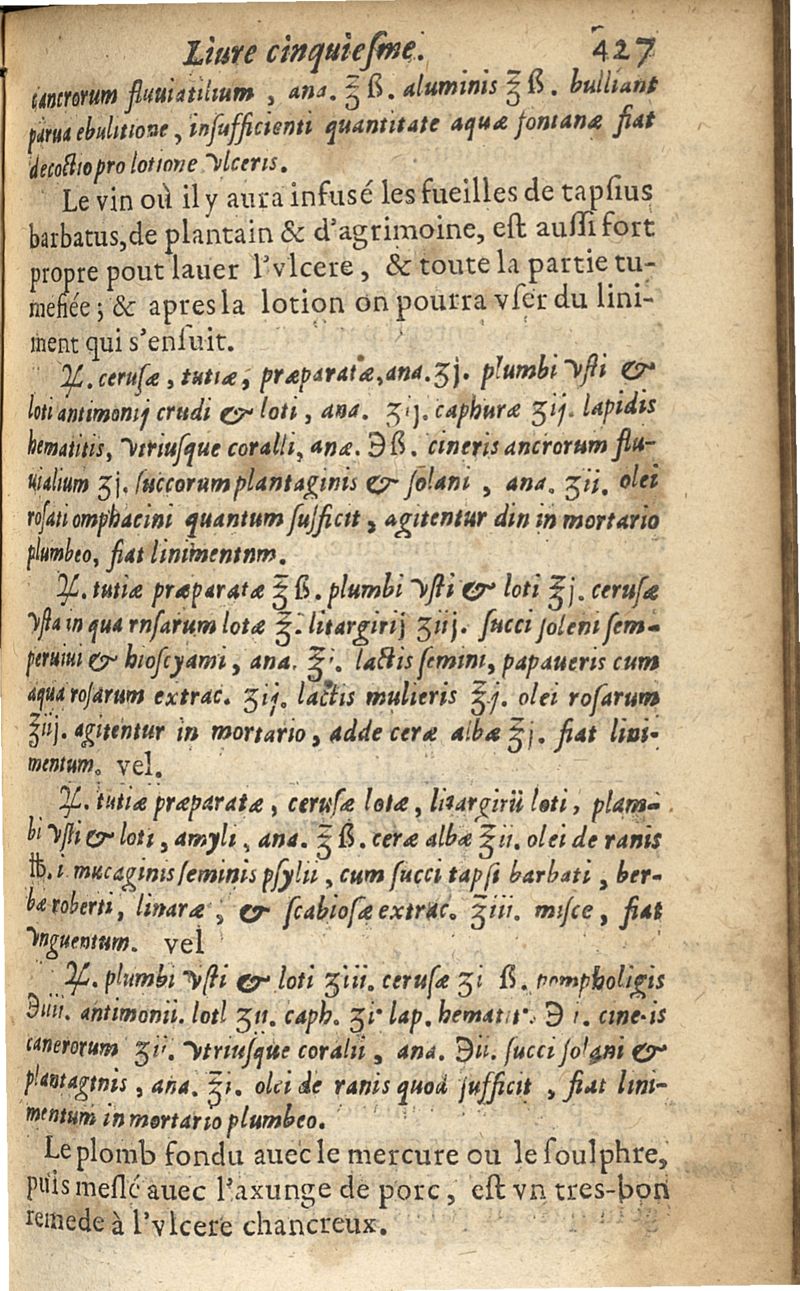 Liure cinquiesme. 427
cancrorum fluuiatilium, ana. ℥ ß. aluminis ℥ ß. bulliant
parua ebulitione, insufficienti quantitate aquæ fontanæ fiat
decoctio pro lotione vlceris.
Le vin où il y aura infusé les fueilles de tapsius
barbatus, de plantain & d'agrimoine, est aussi fort
propre pout lauer l'vlcere, & toute la partie tu-
mefiée; & apres la lotion on pourra vser du lini-
ment qui s'ensuit.
℞. cerusæ, tutiæ, præparatæ, ana. ʒj. plumbi vsti &
loti antimonij crudi & loti, ana. ʒij. caphuræ ʒij. lapidis
hematitis, vtriusque coralli, anæ. ℈ß. cineris ancrorum flu-
uialium ʒj. succorum plantaginis & solani, ana. ʒii. olei
rosati omphacini quantum sufficit, agitentur din in mortario
plumbeo, fiat linimentnm.
℞. tutiæ præparatæ ℥ ß. plumbi vsti & loti ℥j. cerusæ
vsta in qua rnsarum lotæ ℥. litargirij ʒiij. succi joleni sem-
peruiui & hioscyami, ana. ℥i. lactis semini, papaueris cum
aqua rosarum extrac. ʒij. lactis mulieris ℥j. olei rosarum
℥iij. agitentur in mortario, adde ceræ albæ ℥j. fiat lini-
mentum. vel.
℞. tutiæ præparatæ, cerusæ lotæ, litargirii loti, plam-
bi vsti & loti, amyli, ana. ℥ ß. ceræ albæ ℥ii. olei de ranis
℔. i. mucaginis seminis psylii, cum succi tapsi barbati, her-
bæ roberti, linaræ, & scabiosæ extrac. ℥iii. misce, fiat
vnguentum. vel
℞. plumbi vsti & loti ʒiii. cerusæ ʒi ß. pompholigis
℈iiii. antimonii. lotl ʒii. caph. ʒi lap. hematit. ℈ i. cineris
canerorum ʒii. vtriusque coralii, ana. ℈ii. succi solani &
plantaginis, ana. ℥i. olei de ranis quod sufficit, fiat lini-
mentum in mortario plumbeo.
Le plomb fondu auec le mercure ou le soulphre,
puis meslé auec l'axunge de porc, est vn tres-bon
remede à l'vlcere chancreux.